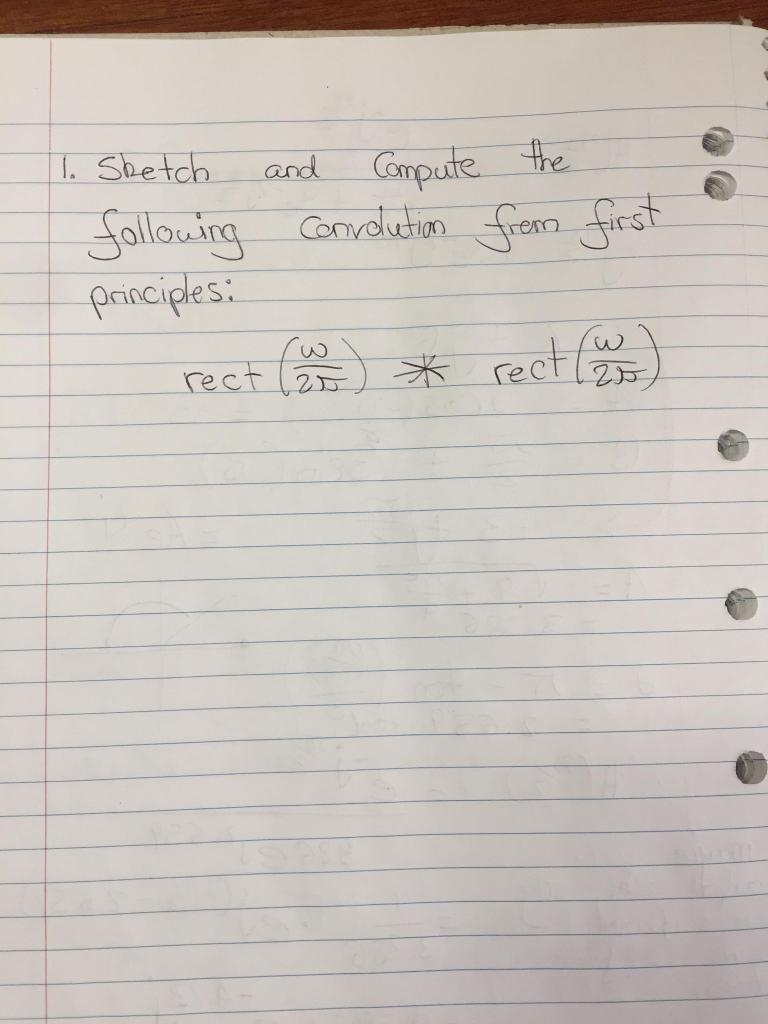 1. Sketch and Compute the
following Convolution from first
principles:
rect (ω/2π) * rect (ω/2π)